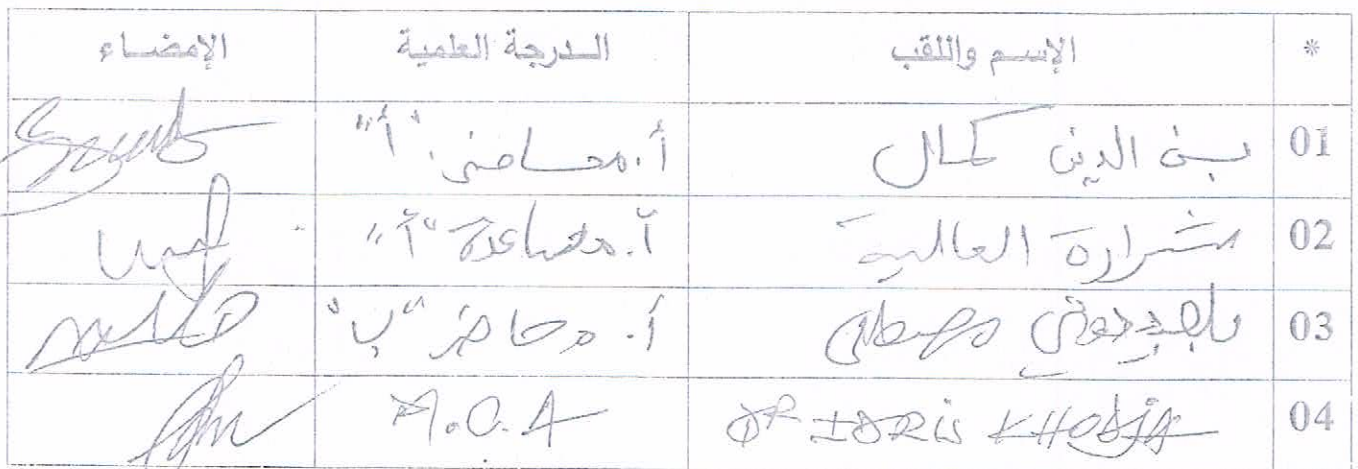 * الإسم واللقب الدرجة العلمية الإمضاء
01 بن الدين كمال أ. محاضر "أ"
02 شرارة العالية أ. مساعدة "أ"
03 مصطفى أ. محاضر "ب"
04 DR IDRIS KHODJA M.C.A